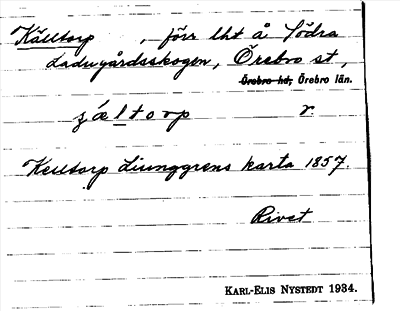 Källtorp , förr lht å Södra
Ladugårdsskogen, Örebro st,
Örebro hd, Örebro län.
r
Kelltorp Ljunggrens karta 1857.
Rivet
KARL-ELIS NYSTEDT 1934.